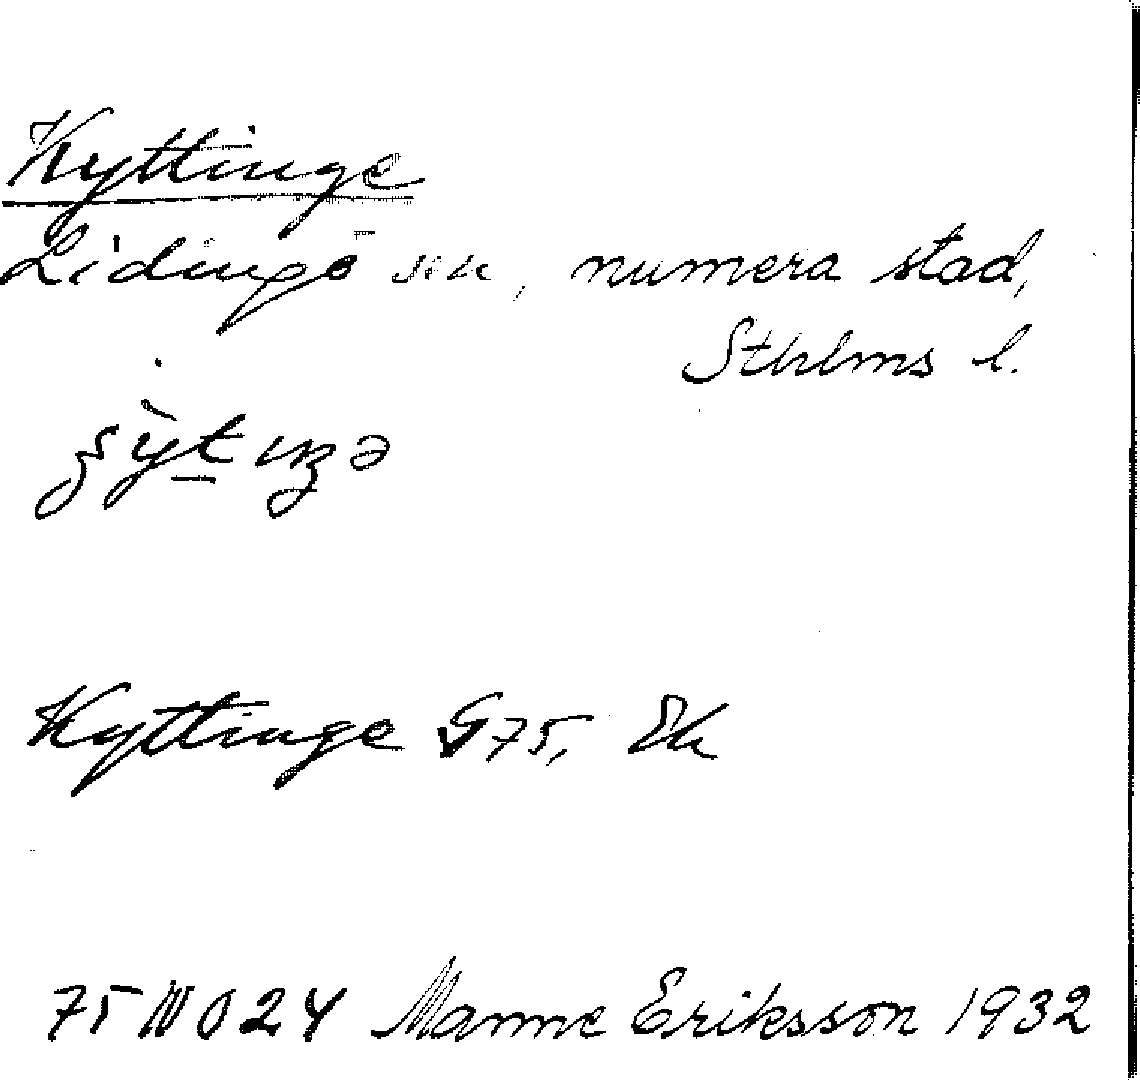 Kyttinge
Lidingö sn, numera stad,
Sthlms l.
Kyttinge G 75, Ek
75 NV 024 Manne Eriksson 1932